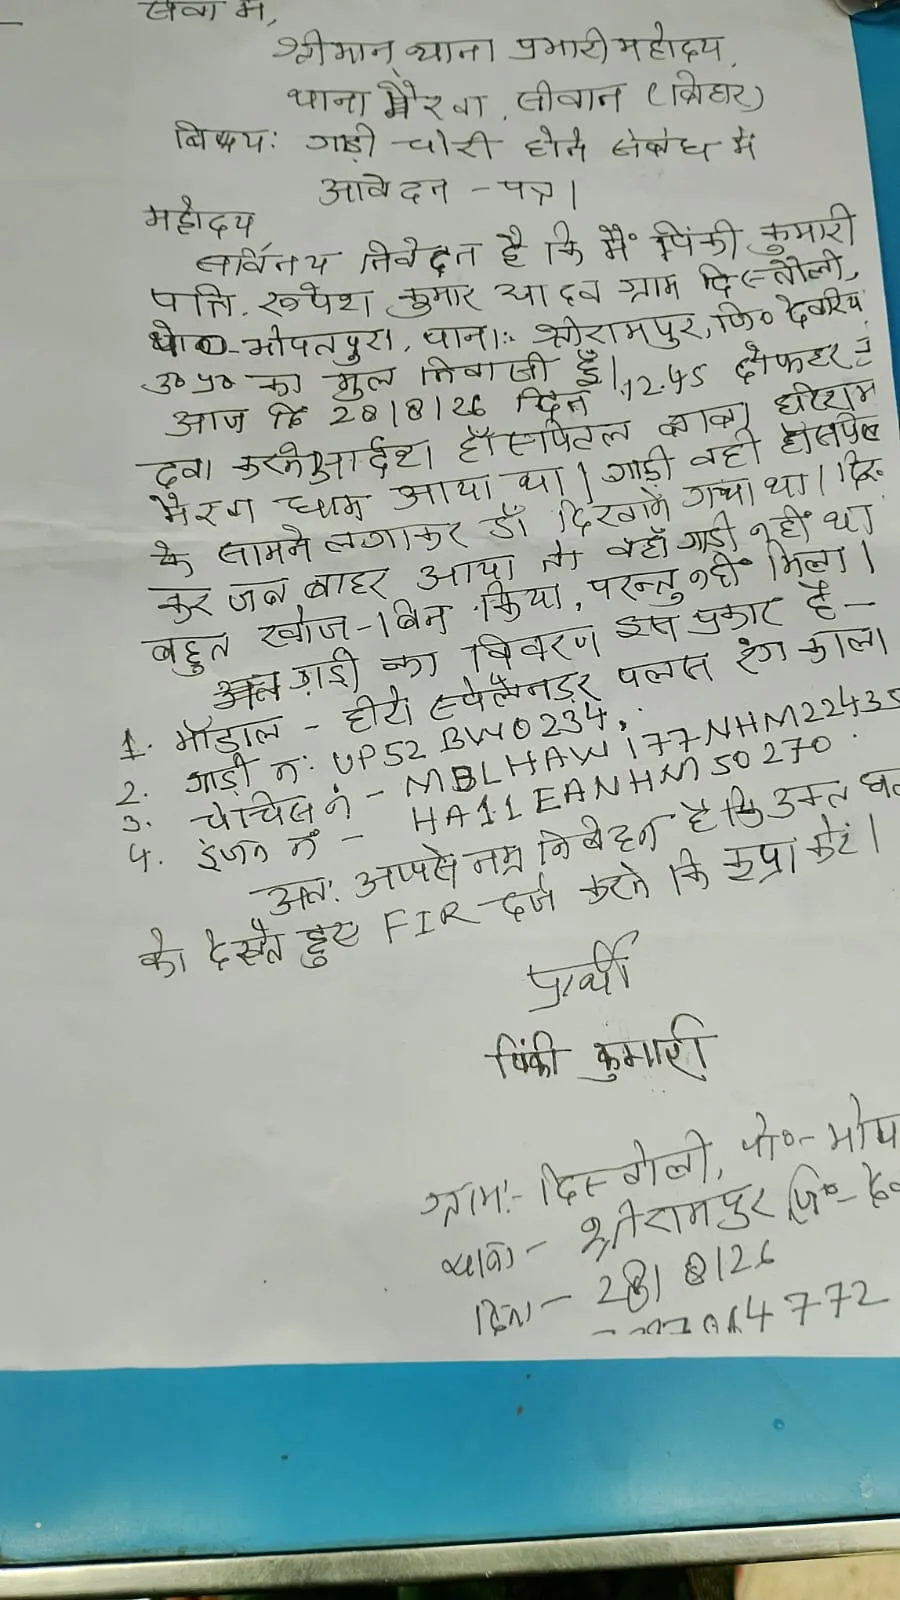 सेवा में,
श्रीमान् थाना प्रभारी महोदय,
थाना मैरवा, सीवान (बिहार)
विषय: गाड़ी चोरी होने संबंध में
आवेदन - पत्र।
महोदय
सविनय निवेदन है कि मैं पिंकी कुमारी
पति. रूपेश कुमार यादव ग्राम दिस्तौली,
पो०-भोपतपुरा, थाना:- श्रीरामपुर, जि० देवरिया
उ०प्र० का मुल निवासी हूँ।
आज दि 28/8/26 दिन 12.45 दोफहर में
दवा कराने आर्दश हॉस्पिटल बाबा हरिराम
मैरवा धाम आया था। गाड़ी वही हॉस्पिटल
के सामने लगाकर डॉ दिखाने गया था। दिखा
कर जब बाहर आया तो वहाँ गाड़ी नहीं था
बहुत खोज-बिन किया, परन्तु नहीं मिला।
गाड़ी का विवरण इस प्रकार है-
1. मॉडाल - हीरो स्पेलैनडर पलस रंग काला
2. गाड़ी नं: UP52 BW0234,
3. चेचिस नं - MBLHAW177NHM22435
4. इंजन नं - HA11EANHM50270.
अत: आपसे नम्र निवेदन है कि उक्त घट
को देखते हुए FIR दर्ज करने कि कृपा करें।
प्रार्थी
पिंकी कुमारी
ग्राम:- दिस्तौली, पो०- भोप
थाना - श्रीरामपुर जि०- देव
दिनां - 28/8/26
4772